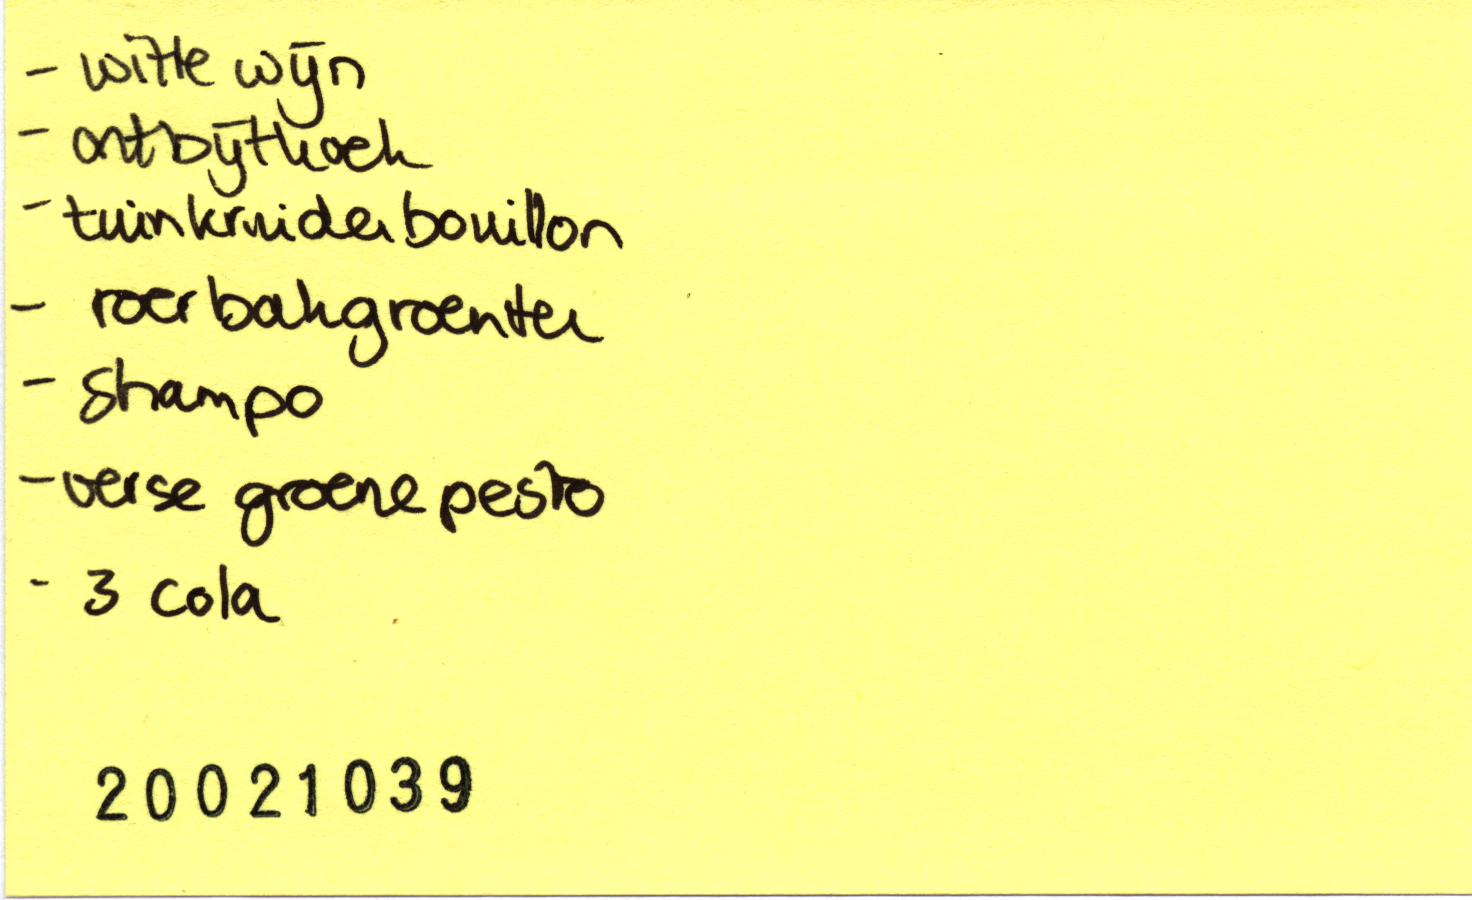 - witte wijn
- ontbijtkoek
- tuinkruidenbouillon
- roerbakgroenten
- shampo
- verse groene pesto
- 3 cola
20021039